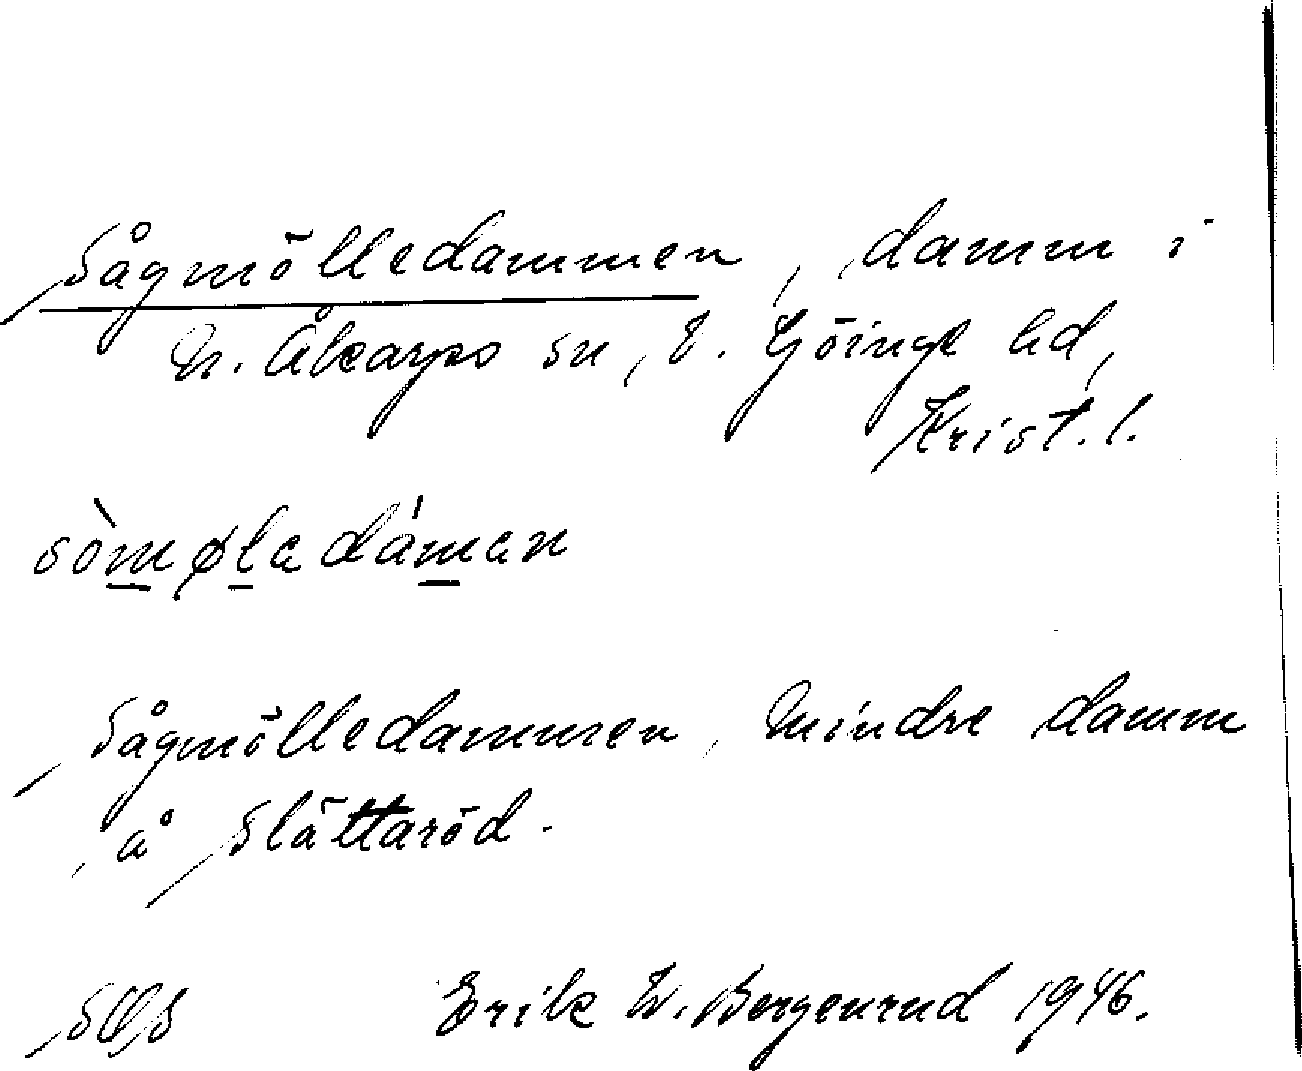 Sågmölledammen, damm i
N. Åkarps sn, V. Göinge hd,
Krist. l.
sòmøladáman
Sågmölledammen, mindre damm
å Slättaröd.
SOS Erik W. Bergenrud 1946.